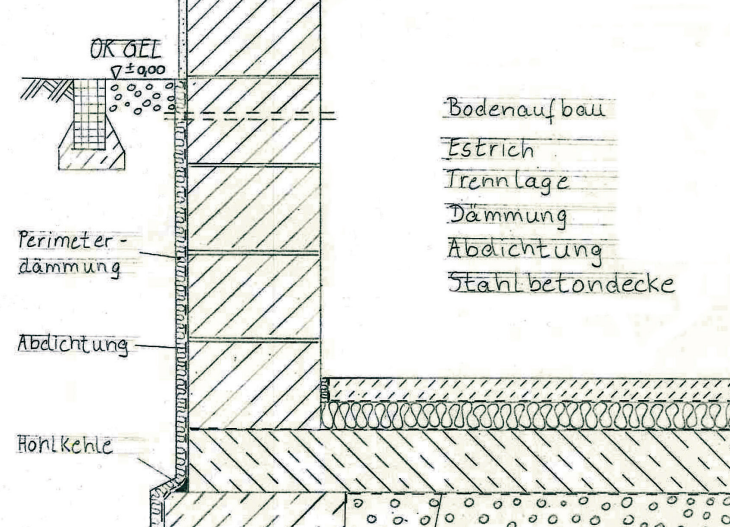 OK GEL
±0,00
Perimeter-
dämmung
Abdichtung
Hohlkehle
Bodenaufbau
Estrich
Trennlage
Dämmung
Abdichtung
Stahlbetondecke